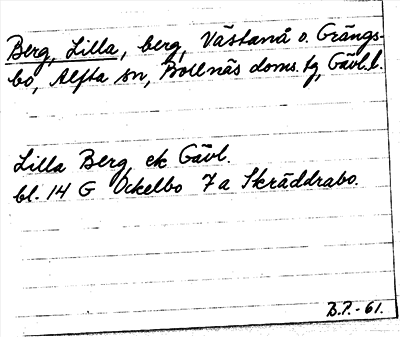 Berg, Lilla, berg, Västanå o. Grängs-
bo, Alfta sn, Bollnäs doms. tg, Gävl. l.
Lilla Berg, ek Gävl.
bl. 14 G Ockelbo 7 a Skräddrabo.
B.P.-61.